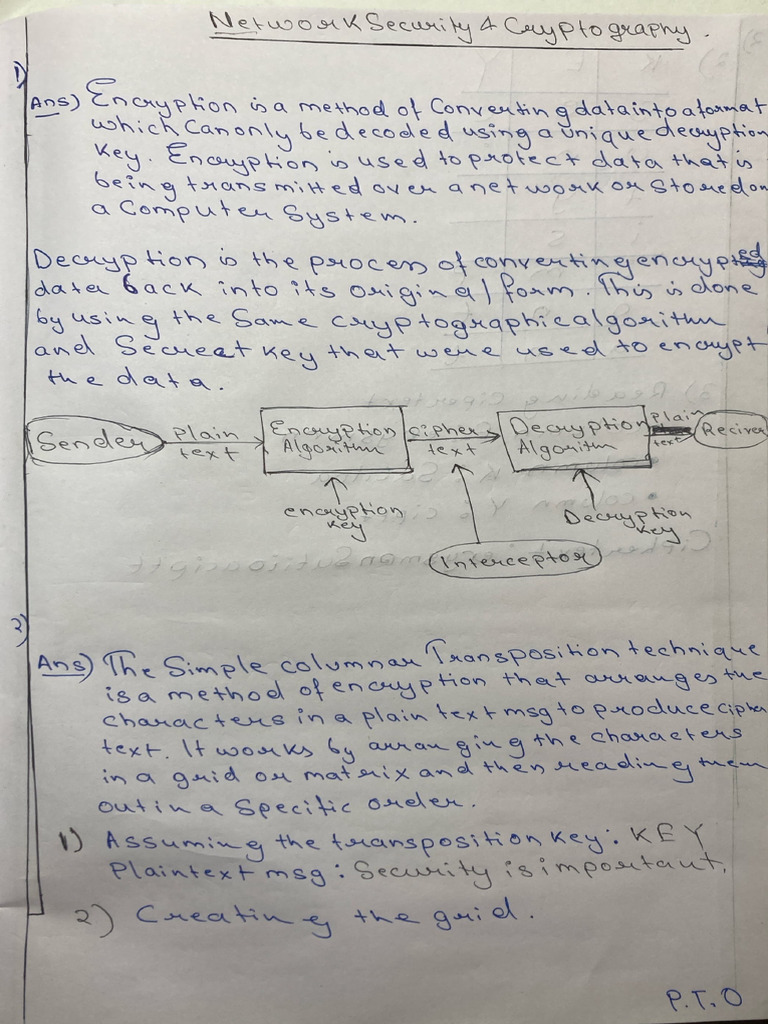 Network Security & Cryptography.
1)
Ans) Encryption is a method of converting data into a format
which can only be decoded using a unique decryption
key. Encryption is used to protect data that is
being transmitted over a network or stored on
a Computer System.
Decryption is the process of converting encrypted
data back into its original form. This is done
by using the same cryptographic algorithm
and Secreet key that were used to encrypt
the data.
Sender
plain text
Encryption Algorithm
cipher text
Decryption Algorithm
plain text
Reciver
encryption key
Decryption key
Interceptor
2)
Ans) The Simple columnar Transposition technique
is a method of encryption that arranges the
characters in a plain text msg to produce cipher
text. It works by arranging the characters
in a grid or matrix and then reading them
out in a specific order.
1) Assuming the transposition key: KEY
Plaintext msg: Security is important.
2) Creating the grid.
P.T.O